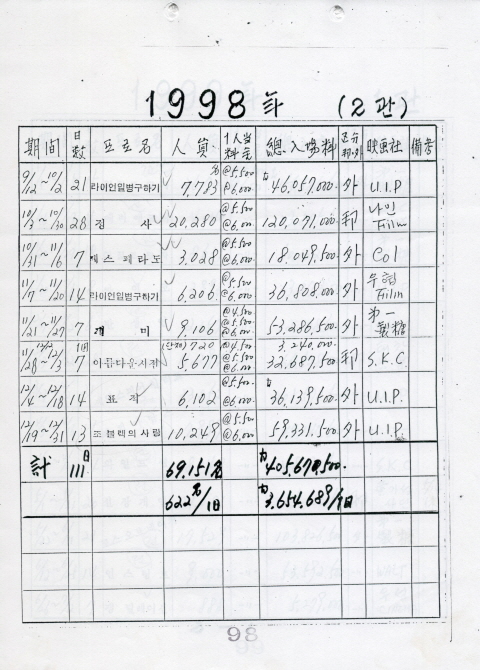 1998年 (2관)
期間 日數 프로名 人員 1人当料金 總入場料 区分 邦·外 映画社 備考
9/12~10/2 21 라이언일병구하기 7,783名 @5,500 @6,000 46,057,000 外 U.I.P
10/3~10/30 28 정 사 20,280 @5,500 @6,000 120,071,000 邦 나인 Film
10/31~11/6 7 데스페라도 3,028 @5,500 @6,000 18,049,500 外 Col
11/7~11/20 14 라이언일병구하기 6,206 @5,500 @6,000 36,808,000 外 Film
11/21~11/27 7 개 미 9,106 @6,000 53,286,500 外 第一製糖
11/28~12/3 7 아름다운시절 (단체)720 5,677 @5,500 @6,000 3,240,000 32,687,500 邦 S.K.C
12/4~12/18 14 표 적 6,102 @5,500 @6,000 36,139,500 外 U.I.P.
12/19~12/31 13 조블랙의사랑 10,249 @5,500 @6,000 59,331,500 外 U.I.P.
計 111日 69,151名 405,670,500
622名/1日 3,654,689/1日
98